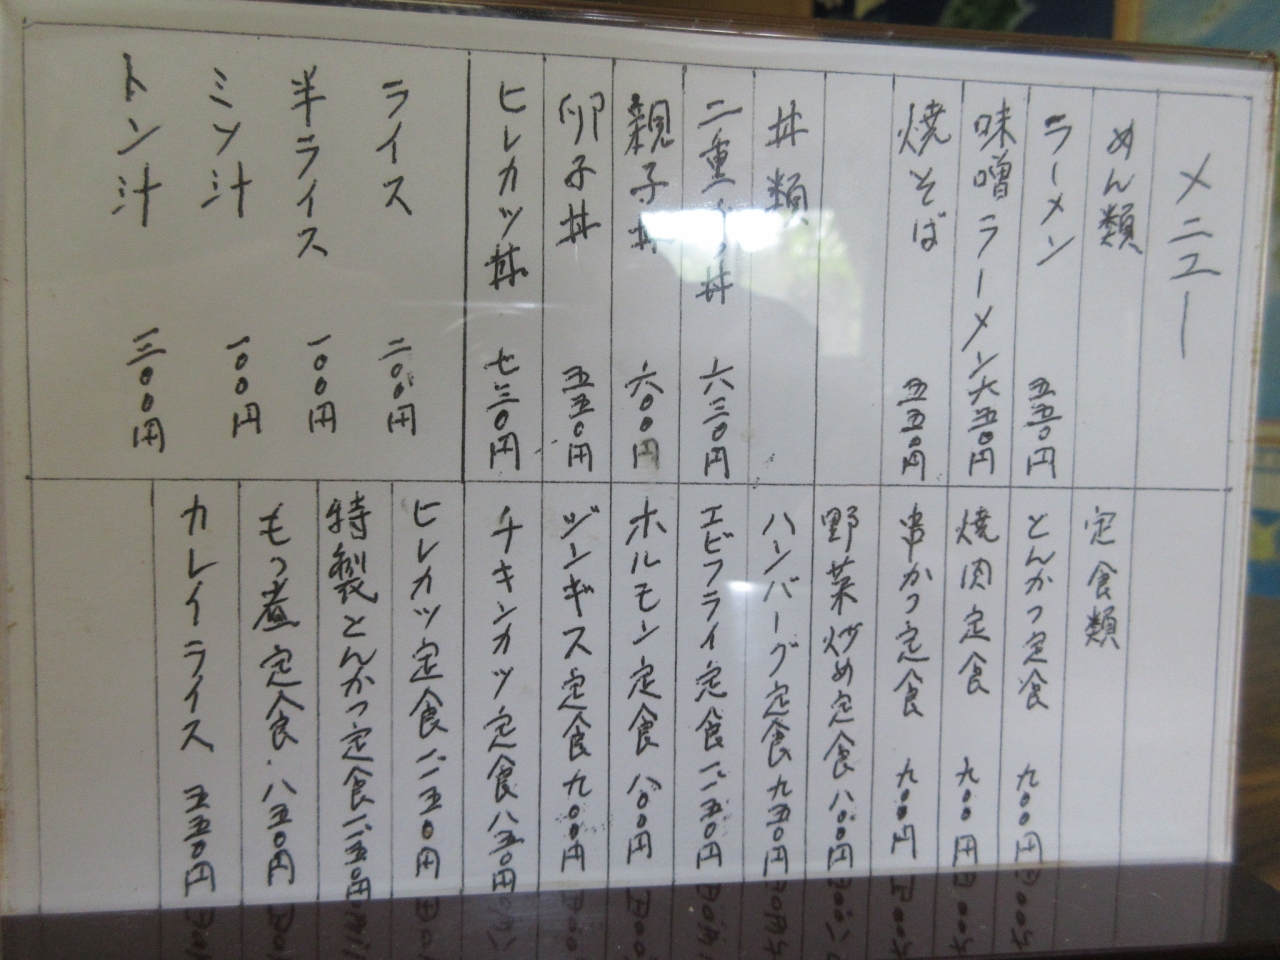 メニュー
めん類
ラーメン 五五〇円
味噌ラーメン 六五〇円
焼そば 五五〇円
丼類
二重かつ丼 六三〇円
親子丼 六〇〇円
卵子丼 五五〇円
ヒレカツ丼 七三〇円
ライス 二〇〇円
半ライス 一〇〇円
ミソ汁 一〇〇円
トン汁 三〇〇円
定食類
とんかつ定食 九〇〇円
焼肉定食 九〇〇円
串かつ定食 九〇〇円
野菜炒め定食 八〇〇円
ハンバーグ定食 九五〇円
エビフライ定食 一一五〇円
ホルモン定食 八〇〇円
ジンギス定食 九〇〇円
チキンカツ定食 八五〇円
ヒレカツ定食 一一五〇円
特製とんかつ定食 一一五〇円
もつ煮定食 八五〇円
カレイライス 五五〇円